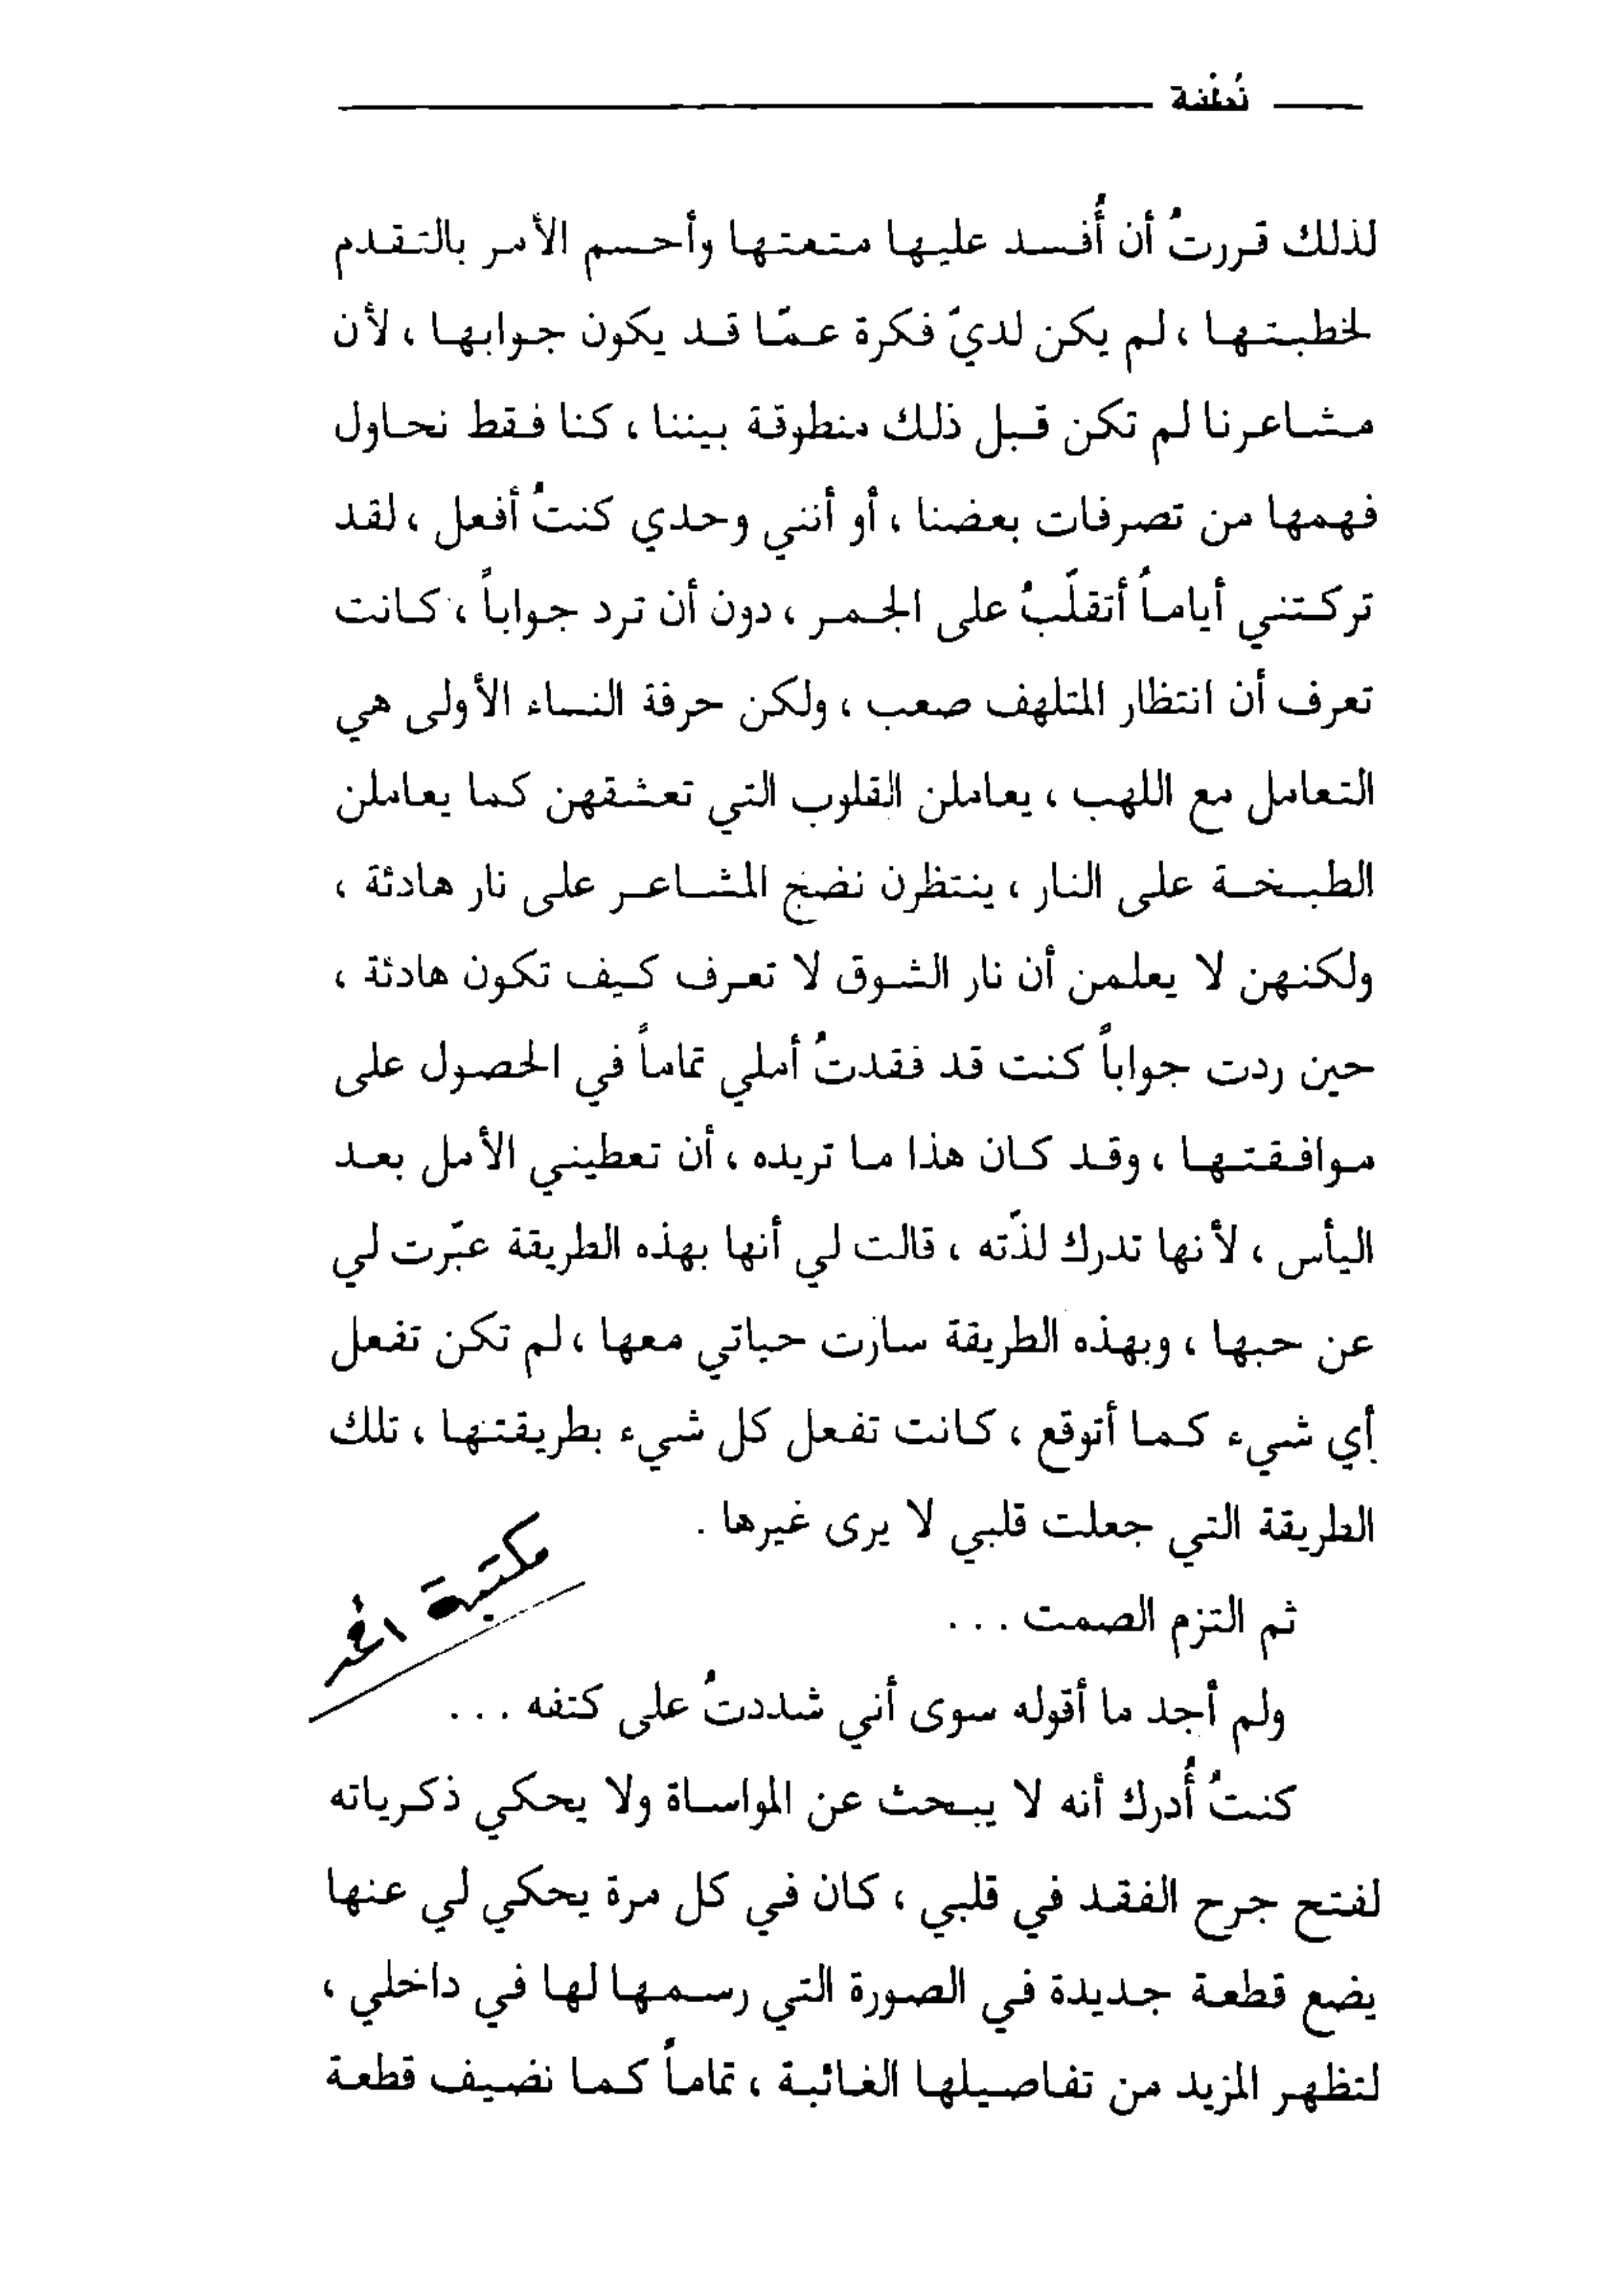 نُطْفة
لذلك قررتُ أن أُفسد عليها متعتها وأحسم الأمر بالتقدم
لخطبتها ، لم يكن لديّ فكرة عمّا قد يكون جوابها ، لأن
مشاعرنا لم تكن قبل ذلك منطوقة بيننا ، كنا فقط نحاول
فهمها من تصرفات بعضنا ، أو أنني وحدي كنتُ أفعل ، لقد
تركتني أياماً أتقلّبُ على الجمر ، دون أن ترد جواباً ، كانت
تعرف أن انتظار المتلهف صعب ، ولكن حرفة النساء الأولى هي
التعامل مع اللهب ، يعاملن القلوب التي تعشقهن كما يعاملن
الطبخة على النار ، ينتظرن نضج المشاعر على نار هادئة ،
ولكنهن لا يعلمن أن نار الشوق لا تعرف كيف تكون هادئة ،
حين ردت جواباً كنت قد فقدتُ أملي تماماً في الحصول على
موافقتها ، وقد كان هذا ما تريده ، أن تعطيني الأمل بعد
اليأس ، لأنها تدرك لذّته ، قالت لي أنها بهذه الطريقة عبّرت لي
عن حبها ، وبهذه الطريقة سارت حياتي معها ، لم تكن تفعل
أي شيء كما أتوقع ، كانت تفعل كل شيء بطريقتها ، تلك
الطريقة التي جعلت قلبي لا يرى غيرها .
مكتبة
ثم التزم الصمت ...
ولم أجد ما أقوله سوى أني شددتُ على كتفه ...
كنتُ أُدرك أنه لا يبحث عن المواساة ولا يحكي ذكرياته
لفتح جرح الفقد في قلبي ، كان في كل مرة يحكي لي عنها
يضع قطعة جديدة في الصورة التي رسمها لها في داخلي ،
لتظهر المزيد من تفاصيلها الغائبة ، تماماً كما نضيف قطعة